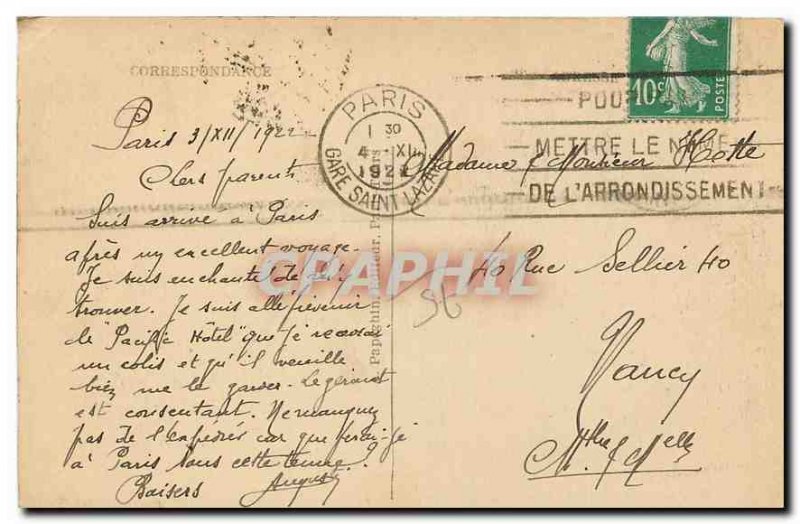 CORRESPONDANCE
Paris 3/XII/1922
Chers parents
Suis arrivé à Paris
après un excellent voyage.
Je suis enchanté de
trouver. Je suis allé prévenir
le "Pacific Hotel" que je
un colis et qu'il veuille
bien me le garder. Le gérant
est consentant. Ne manquez
pas de l'expédier car que ferai-je
à Paris sans cette tenue?
Baisers August
PARIS
1 30
4 XII
192
GARE SAINT LAZARE
POUR
METTRE LE
DE L'ARRONDISSEMENT
10c
POSTES
Madame & Monsieur Hotte
40 Rue Sellier 40
Nancy
Mthe & Melle
56
CPAPHIL